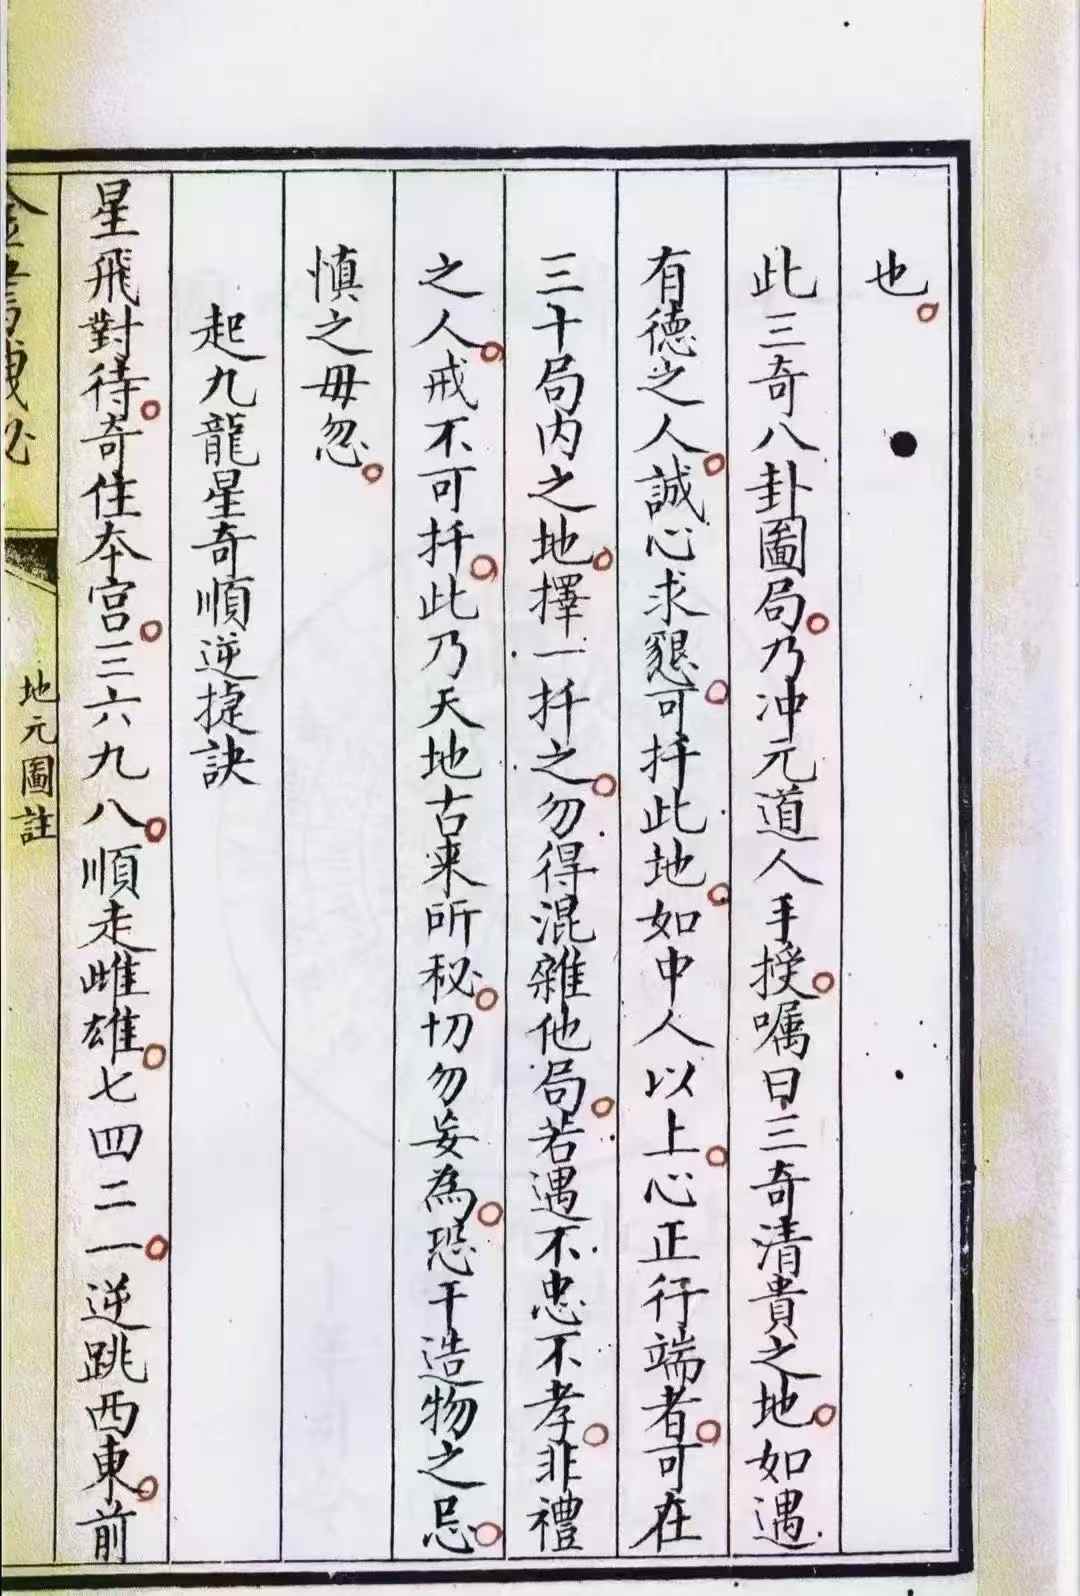 也
此三奇八卦圖局乃冲元道人手授嘱曰三奇清貴之地如遇
有德之人誠心求懇可扦此地如中人以上心正行端者可在
三十局内之地擇一扦之勿得混雜他局若遇不忠不孝非禮
之人戒不可扦此乃天地古来所秘切勿妄為恐干造物之忌
慎之毋忽
起九龍星奇順逆捷訣
星飛對待奇住本宫三六九八順走雌雄七四二一逆跳西東前
地元圖註